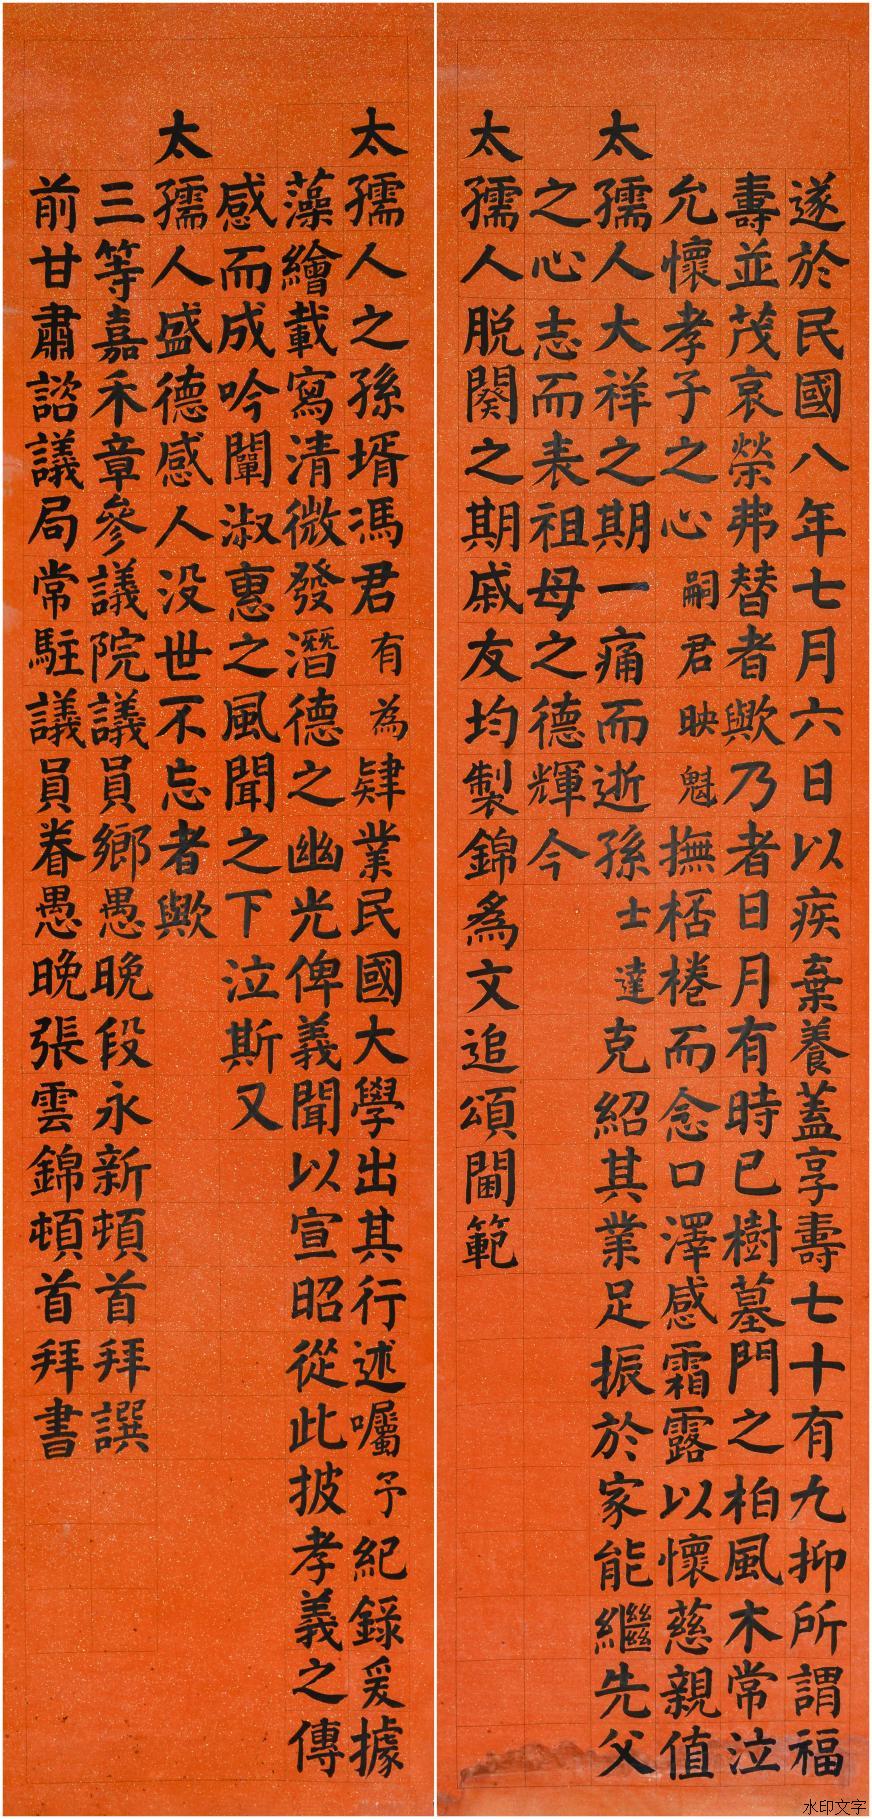 遂於民國八年七月六日以疾棄養蓋享壽七十有九抑所謂福
壽並茂哀榮弗替者歟乃者日月有時已樹墓門之柏風木常泣
允懷孝子之心嗣君映魁撫桮棬而念口澤感霜露以懷慈親值
太孺人大祥之期一痛而逝孫士達克紹其業足振於家能繼先父
之心志而表祖母之德輝今
太孺人脱闋之期戚友均製錦為文追頌閫範
太孺人之孫壻馮君有為肄業民國大學出其行述囑予紀錄爰據
藻繪載寫清微發潛德之幽光俾義聞以宣昭從此披孝義之傳
感而成吟闡淑惠之風聞之下泣斯又
太孺人盛德感人没世不忘者歟
三等嘉禾章參議院議員鄉愚晚段永新頓首拜譔
前甘肅諮議局常駐議員眷愚晚張雲錦頓首拜書
水印文字